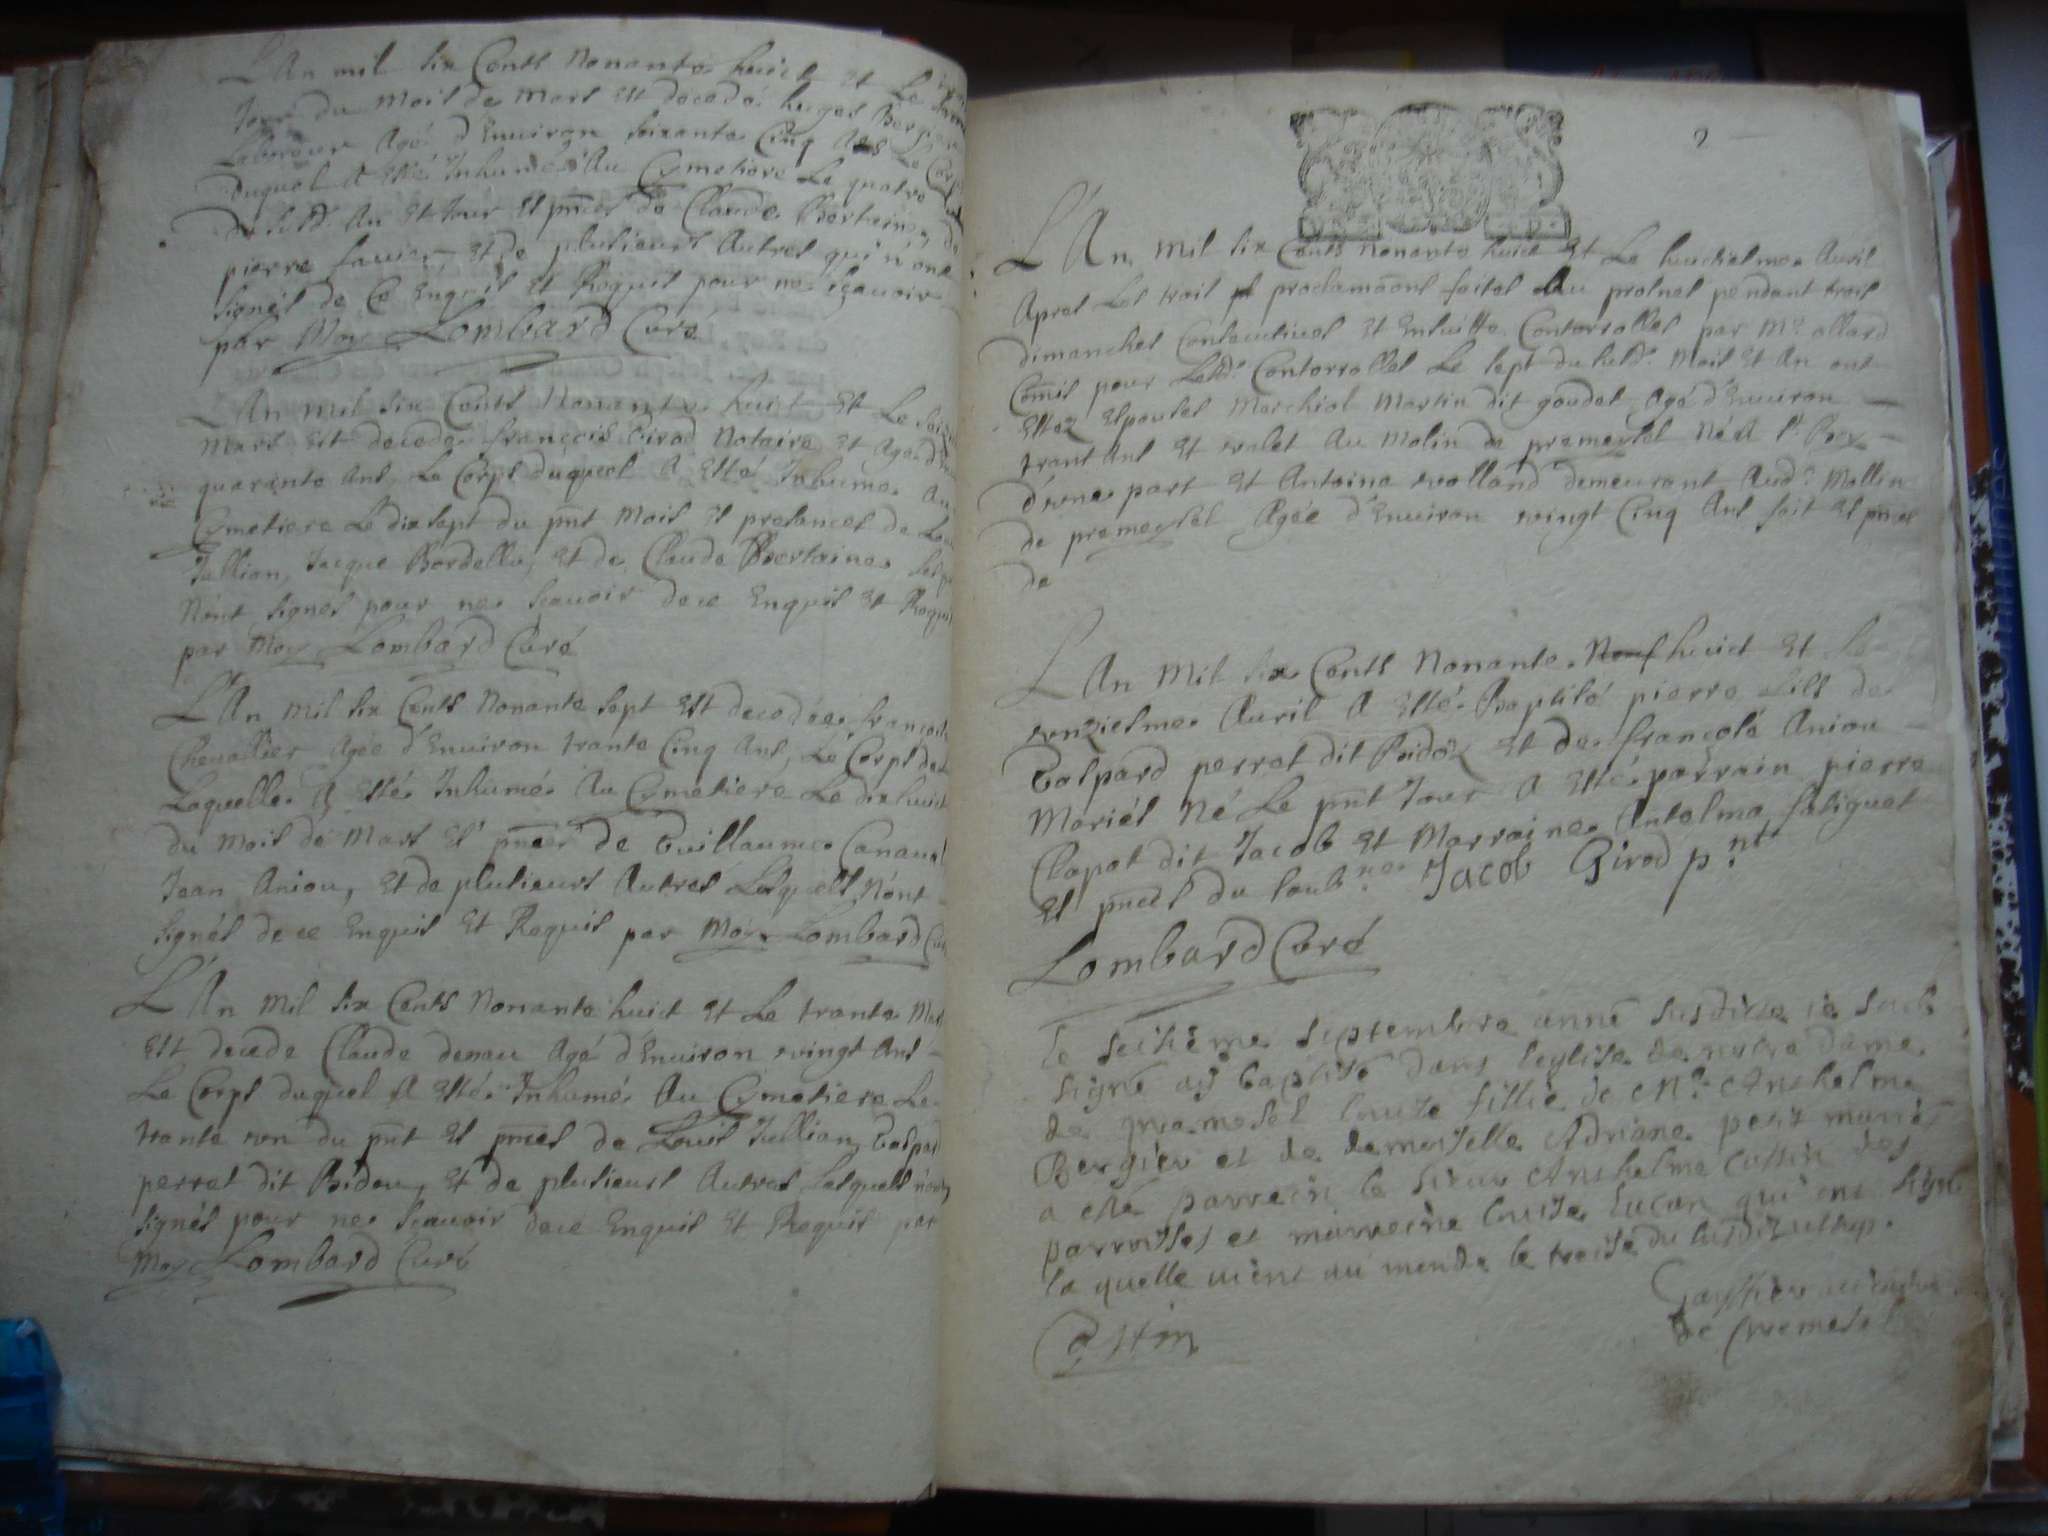 L'An mil six Cents Nonante huict Et Le
Jour du Mois de Mars Est decedé huges
Laboureur Agé d'Environ soixante Cinq Ans Le Corps
duquel A Esté Inhumé Au Cymetiere Le quatre
du susd. An Et Jour Es pnces de Claude Bertrine, de
pierre favier, Et de plusieurs Autres qui n'ont
signés de Ce Enquis Et Requis pour ne sçavoir
par Moy Lombard Curé
L'An mil six Cents Nonante huict Et Le
Mars Est decedé françois Girod Notaire Et Agé d'En
quarante Ans, Le Corps duquel A Esté Inhumé Au
Cymetiere Le dix sept du pnt Mois Es presances de
Jullian, Jacque Bordellu, Et de Claude Bertrine
N'ont signés pour ne scavoir de ce Enquis Et Requis
par Moy Lombard Curé
L'An mil six Cents Nonante sept Est decedée françoise
Chevallier Agée d'Environ trante Cinq Ans, Le Corps de
Laquelle A Esté Inhumé Au Cymetiere Le dix huict
du Mois de Mars Es pnces de Guillaume Canaval
Jean Aniou, Et de plusieurs Autres Lesquels N'ont
signés de ce Enquis Et Requis par Moy Lombard Curé
L'An Mil six Cents Nonante huict Et Le trante Mars
Est decedé Claude denau Agé d'Environ vingt Ans
Le Corps duquel A Esté Inhumé Au Cymetiere Le
trante un du pnt Es pnces de Louis Jullian, Gaspard
perret dit Bidou, Et de plusieurs Autres Lesquels n'ont
signés pour ne scavoir de ce Enquis Et Requis par
Moy Lombard Curé
2
L'An Mil six Cents Nonante huict Et Le huictiesme Avril
Apres Les trois proclamaons faites Au prosnes pendant trois
dimanches Consecutives Et Ensuitte Controrolles par Mr. ollard
Comis pour Lesd. Controrolles Le sept du susd. Mois Et An ont
Estez Espouses Merchiol Martin dit goudet Agé d'Environ
trant Ans Et valet Au Molin de premeysel Né A
d'une part Et Antoina rolland demeurant Aud. Mollin
de premeysel Agée d'Environ vingt Cinq Ans fait Es pnces
de
L'An Mil six Cents Nonante Neuf huict Et Le
unziesme Avril A Esté Baptisé pierre fils de
Gaspard perret dit Bidoz Et de françoise Aniou
Mariés Né Le pnt Jour A Esté parrain pierre
Clapot dit Jacob Et Marraine Antelma faliguet
Es pnces du soubne Jacob Girod pnt
Lombard Curé
le seitieme septembre anné susdite ie soub
signé ay baptisé dans leglise de notre dame
de premesel Louise fillie de Mr. Anthelme
Bergier et de demoiselle Adriane petit mariés
a esté parrein le sieur Anthelme Cottin des
parroisses et marreine Louise Lucan qui ont signé
la quelle vient au monde le treise du susdit
Gauthier
de premesel
Cottin